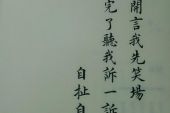 開言我先笑場
完了聽我訴一訴
自扯自